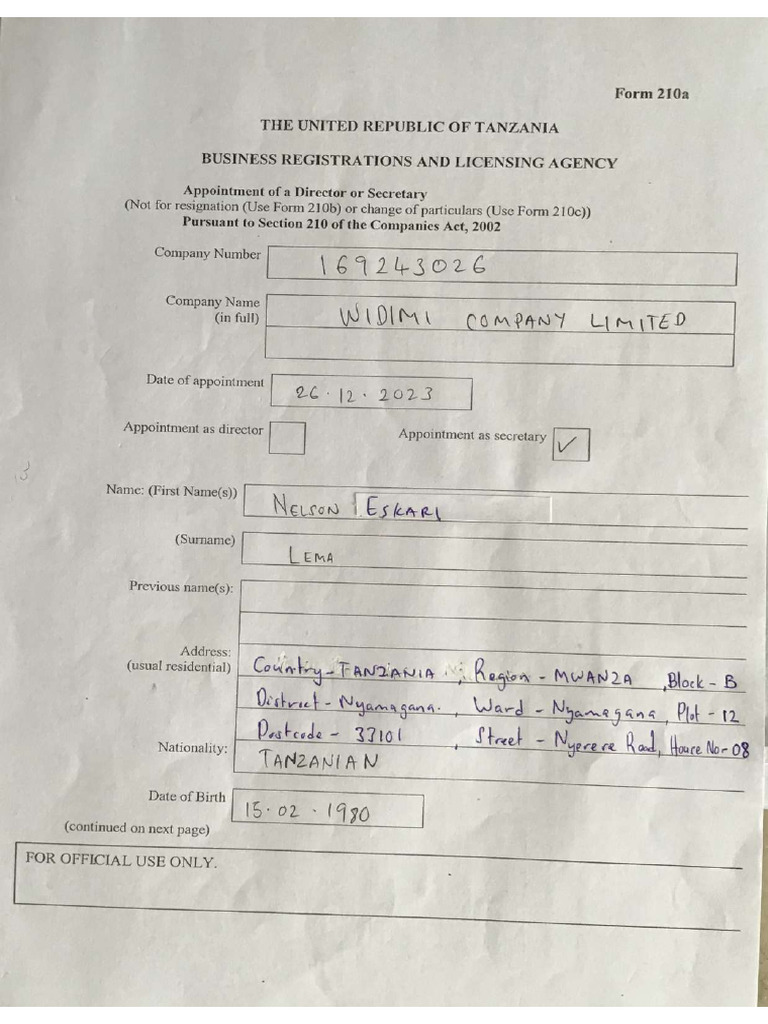 Form 210a
THE UNITED REPUBLIC OF TANZANIA
BUSINESS REGISTRATIONS AND LICENSING AGENCY
Appointment of a Director or Secretary
(Not for resignation (Use Form 210b) or change of particulars (Use Form 210c))
Pursuant to Section 210 of the Companies Act, 2002
Company Number 169243026
Company Name WIDIMI COMPANY LIMITED
(in full)
Date of appointment 26.12.2023
Appointment as director Appointment as secretary ✓
Name: (First Name(s)) NELSON ESKARI
(Surname) LEMA
Previous name(s):
Address:
(usual residential) Country - TANZANIA, Region - MWANZA, Block - B
District - Nyamagana., Ward - Nyamagana, Plot - 12
Postcode - 33101, Street - Nyerere Road, House No - 08
Nationality: TANZANIAN
Date of Birth 15.02.1980
(continued on next page)
FOR OFFICIAL USE ONLY.